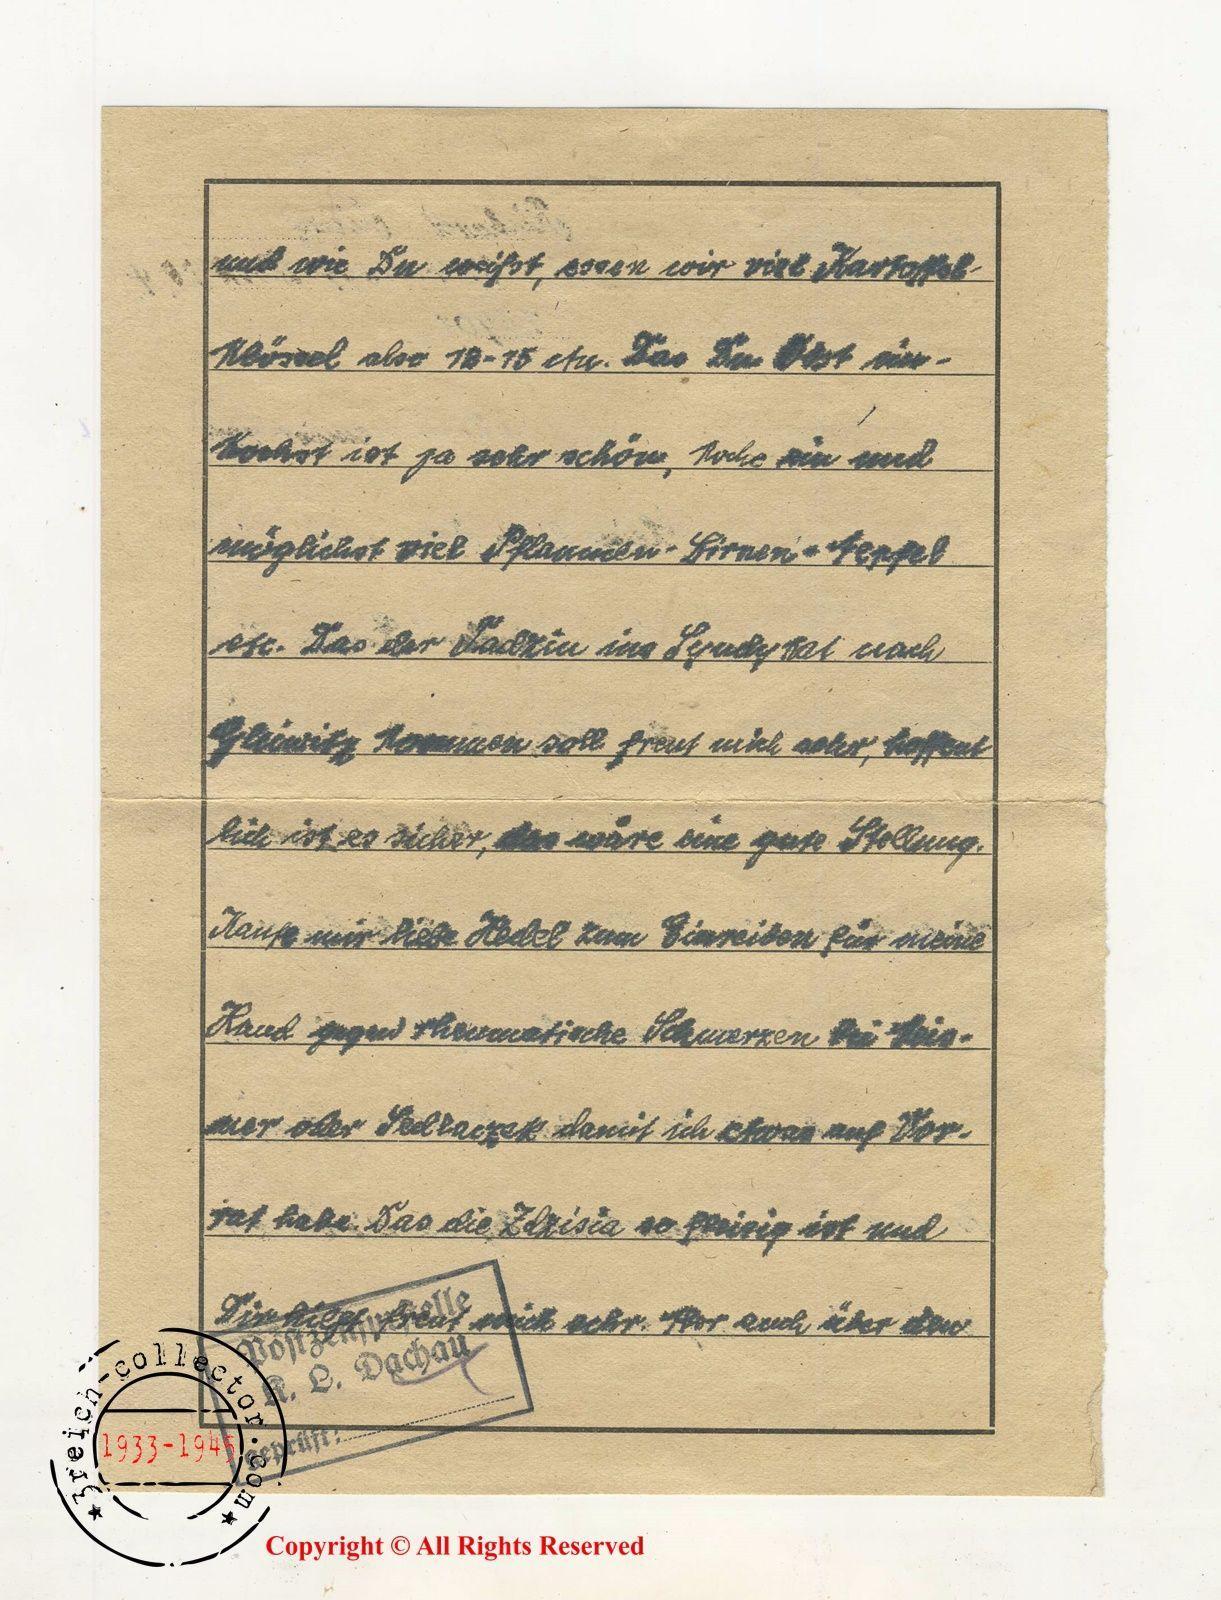 und wie Du weißt, essen wir viel Kartoffel-
Klössel also 12-15 ctn. Das Du Obst ein-
kochst ist ja sehr schön, Koche ein und
möglichst viel Pflaumen- Birnen- Aeppfel
etc. Das der Tadziu ins Syndykat nach
Gleiwitz kommen soll freut mich sehr, hoffent
lich ist es sicher, das wäre eine gute Stellung.
Kaufe mir liebe Hedel zum Einreiben für meine
Hand gegen rheumatische Schmerzen bei
mer oder Sedlaczek damit ich etwas auf Vor-
rat habe. Das die Zdzisia so fleisig ist und
Dir hilft freut mich sehr. Aber auch über den
Postzensurstelle
K. L. Dachau
geprüft:
3reich-collector.com
1933-1945
Copyright © All Rights Reserved